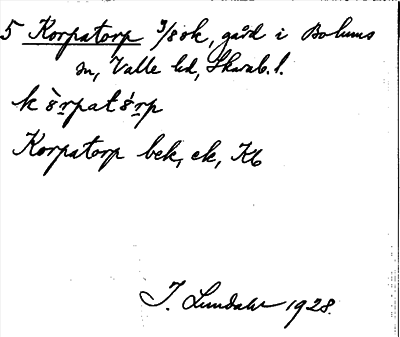 5 Korpatorp 3/8 ek, gård i Bolums
sn, Valle hd, Skarab. l.
kòrpatórp
Korpatorp bek, ek, Kb
J. Lundahl 1928.